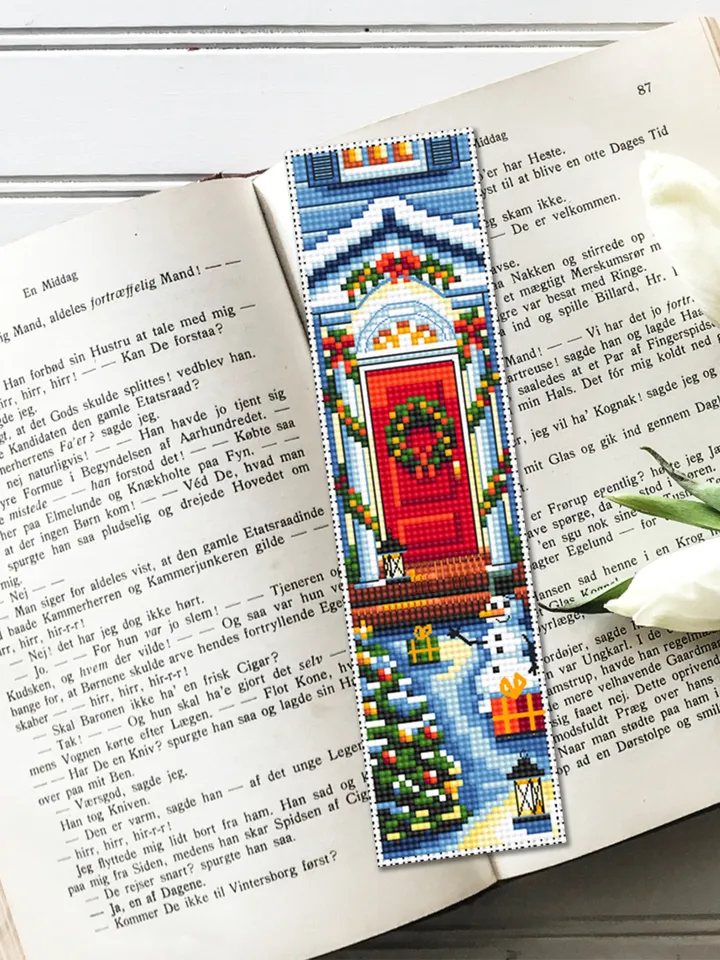 En Middag
ig Mand, aldeles fortræffelig Mand! — —
Han forbød sin Hustru at tale med mig —
irr, hirr, hirr! — — Kan De forstaa?
gde jeg.
gt, at det Gods skulde splittes! vedblev han.
e Kandidaten den gamle Etatsraad?
merherrens Fa'er? sagde jeg.
nej naturligvis! — — Han havde jo tjent sig
yre Formue i Begyndelsen af Aarhundredet. —
mistede — — han forstod det! — — Købte saa
her paa Elmelunde og Knækholte paa Fyn. — —
at der ingen Børn kom! — — Véd De, hvad man
spurgte han saa pludselig og drejede Hovedet om
mig.
— Nej — —
— Man siger for aldeles vist, at den gamle Etatsraadinde
baade Kammerherren og Kammerjunkeren gilde — —
irr, hirr, hir-r-r!
— Nej! det har jeg dog ikke hørt.
— Jo. — — For hun var jo slem! — — Tjeneren
Kudsken, og hvem der vilde! — — Og saa var hun
hange for, at Børnene skulde arve hendes fortryllende
skaber — — hirr, hirr, hir-r-r!
— Skal Baronen ikke ha' en frisk Cigar?
— Tak! — — Og hun skal ha'e gjort det selv —
mens Vognen kørte efter Lægen. — — Flot Kone,
— — Har De en Kniv? spurgte han saa og lagde sin
over paa mit Ben.
— Værsgod, sagde jeg.
Han tog Kniven.
— Den er varm, sagde han — — af det unge
— hirr, hirr, hir-r-r!
Jeg flyttede mig lidt bort fra ham. Han sad og
paa mig fra Siden, medens han skar Spidsen af
— De rejser snart? spurgte han saa.
— Ja, en af Dagene.
— Kommer De ikke til Vintersborg først?
87
Middag
er har Heste.
lyst til at blive en otte Dages Tid
g skam ikke.
— De er velkommen.
avse.
Nakken og stirrede op
et mægtigt Merskumsrør
gre var besat med Ringe.
ind og spille Billard, Hr.
Mand! — — Vi har det jo
artreuse! sagde han og lagde
saaledes at et Par af
min Hals. Det fór mig koldt ned
r, jeg vil ha' Kognak! sagde jeg og
mit Glas og gik ind gennem
er Frørup egentlig? havde jeg
ave spørge, da
'en sgu nok
agter Egelund — for
Jansen sad henne i en Krog
sagde
var Ungkarl. I de
havde han
mere velhavende
sig faaet nej. Dette
Præg over hans
Naar man stødte paa ham i
op ad en Dørstolpe og